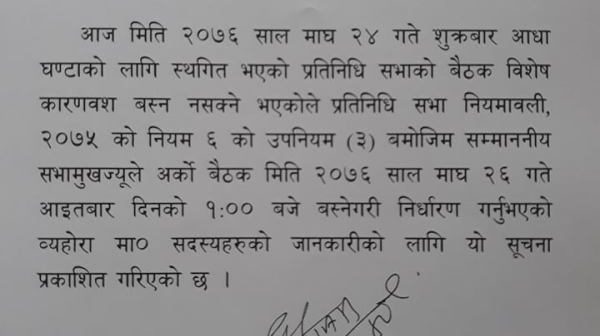 आज मिति २०७६ साल माघ २४ गते शुक्रबार आधा
घण्टाको लागि स्थगित भएको प्रतिनिधि सभाको बैठक विशेष
कारणवश बस्न नसक्ने भएकोले प्रतिनिधि सभा नियमावली,
२०७५ को नियम ६ को उपनियम (३) बमोजिम सम्माननीय
सभामुखज्यूले अर्को बैठक मिति २०७६ साल माघ २६ गते
आइतबार दिनको १:०० बजे बस्नेगरी निर्धारण गर्नुभएको
व्यहोरा मा० सदस्यहरुको जानकारीको लागि यो सूचना
प्रकाशित गरिएको छ ।